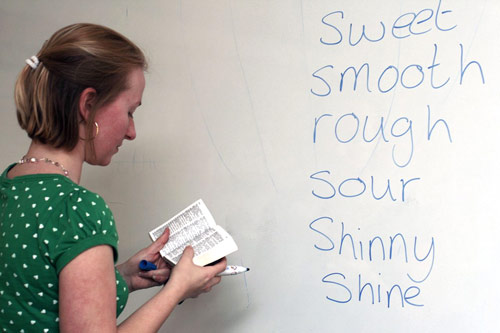 Sweet
smooth
rough
sour
Shinny
Shine